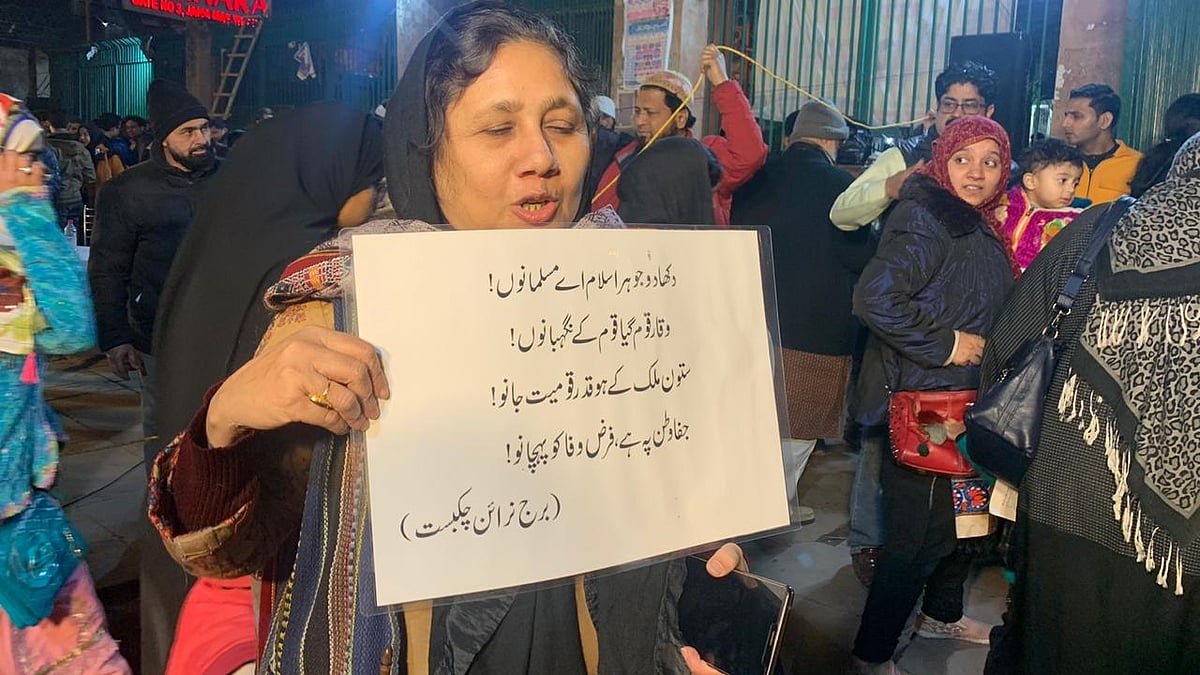 GATE NO 3, JAMA MASJID
دکھا دو جوہر اسلام اے مسلمانوں!
وقار قوم گیا قوم کے نگہبانوں!
ستون ملک کے ہو قدر قومیت جانو!
جفا وطن پہ ہے، فرض وفا کو پہچانو!
(برج نرائن چکبست)